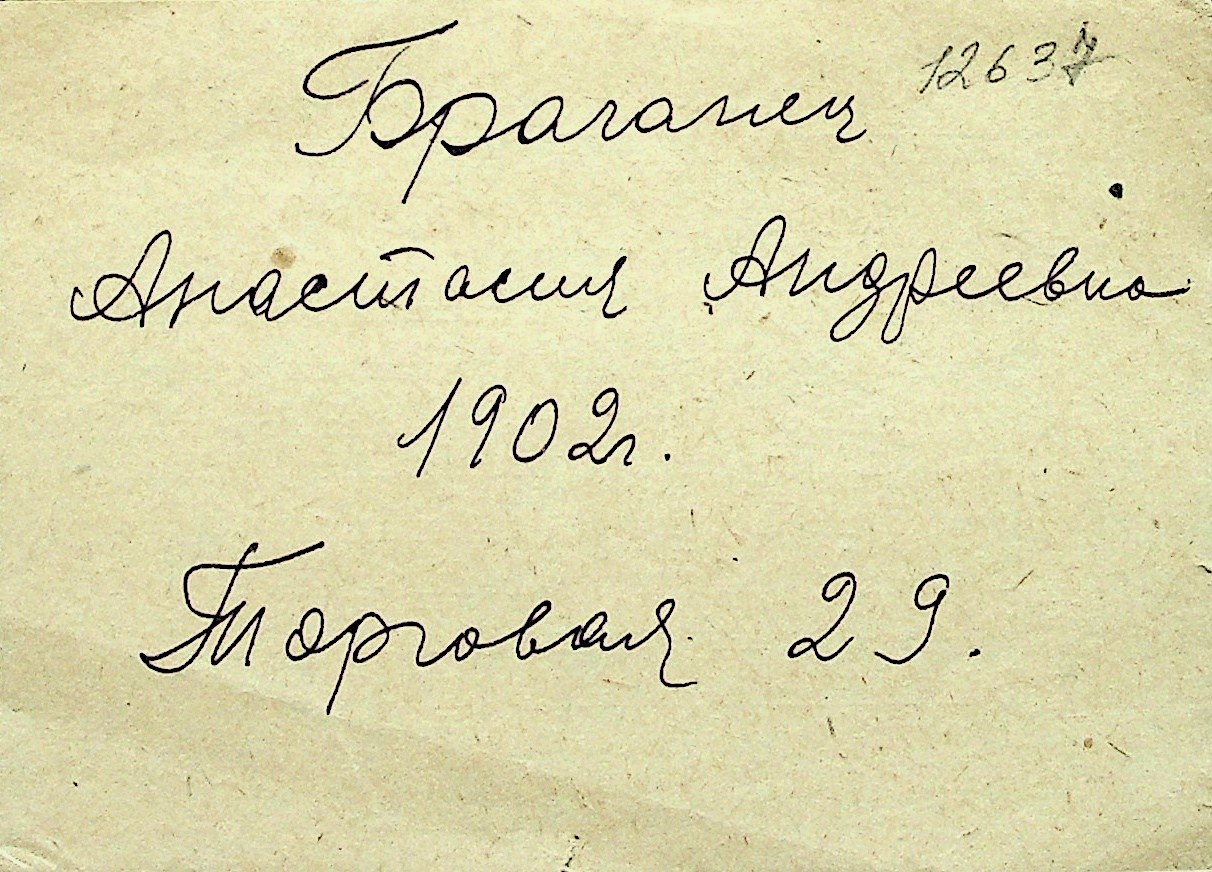 12637
Браганец
Анастасия Андреевна
1902г.
Торговая 29.